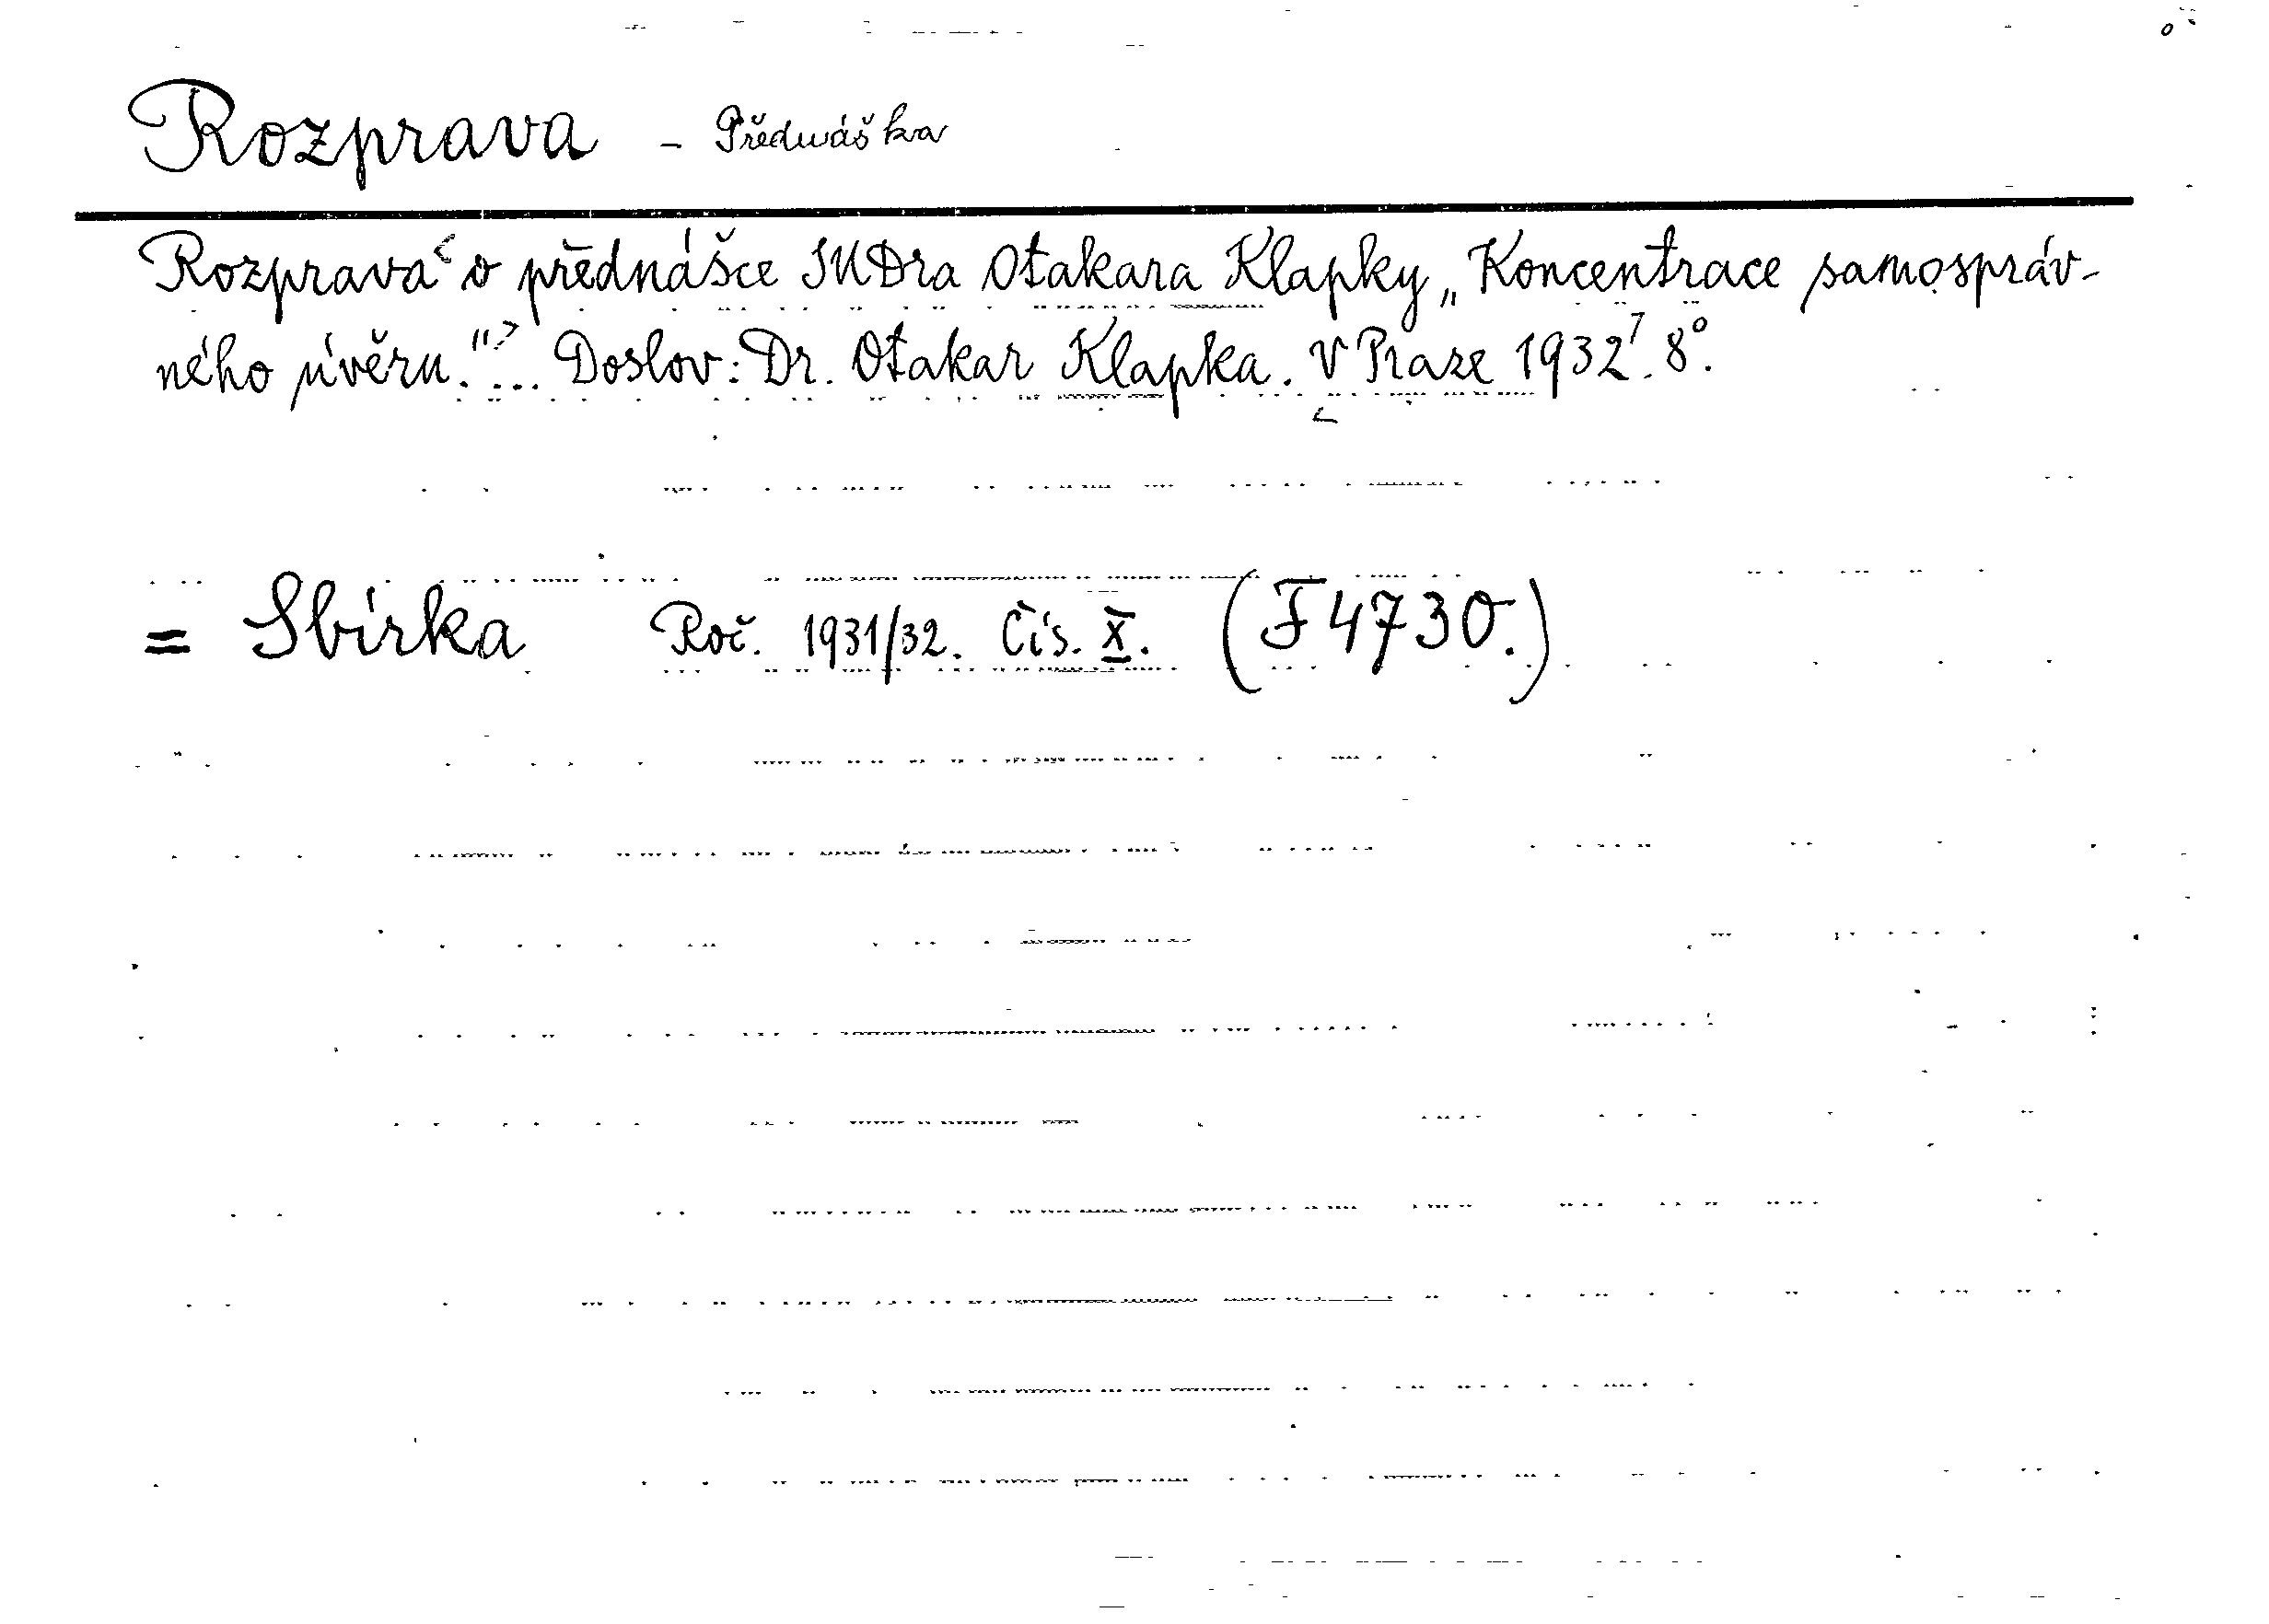 Rozprava - Přednáška
Rozprava < o přednášce JUDra Otakara Klapky „Koncentrace samospráv-
ného úvěru.“> ... Doslov: Dr. Otakar Klapka. V Praze < 1932>. 8°.
= Sbírka Roč. 1931/32. Čís. X. (F 4730.)